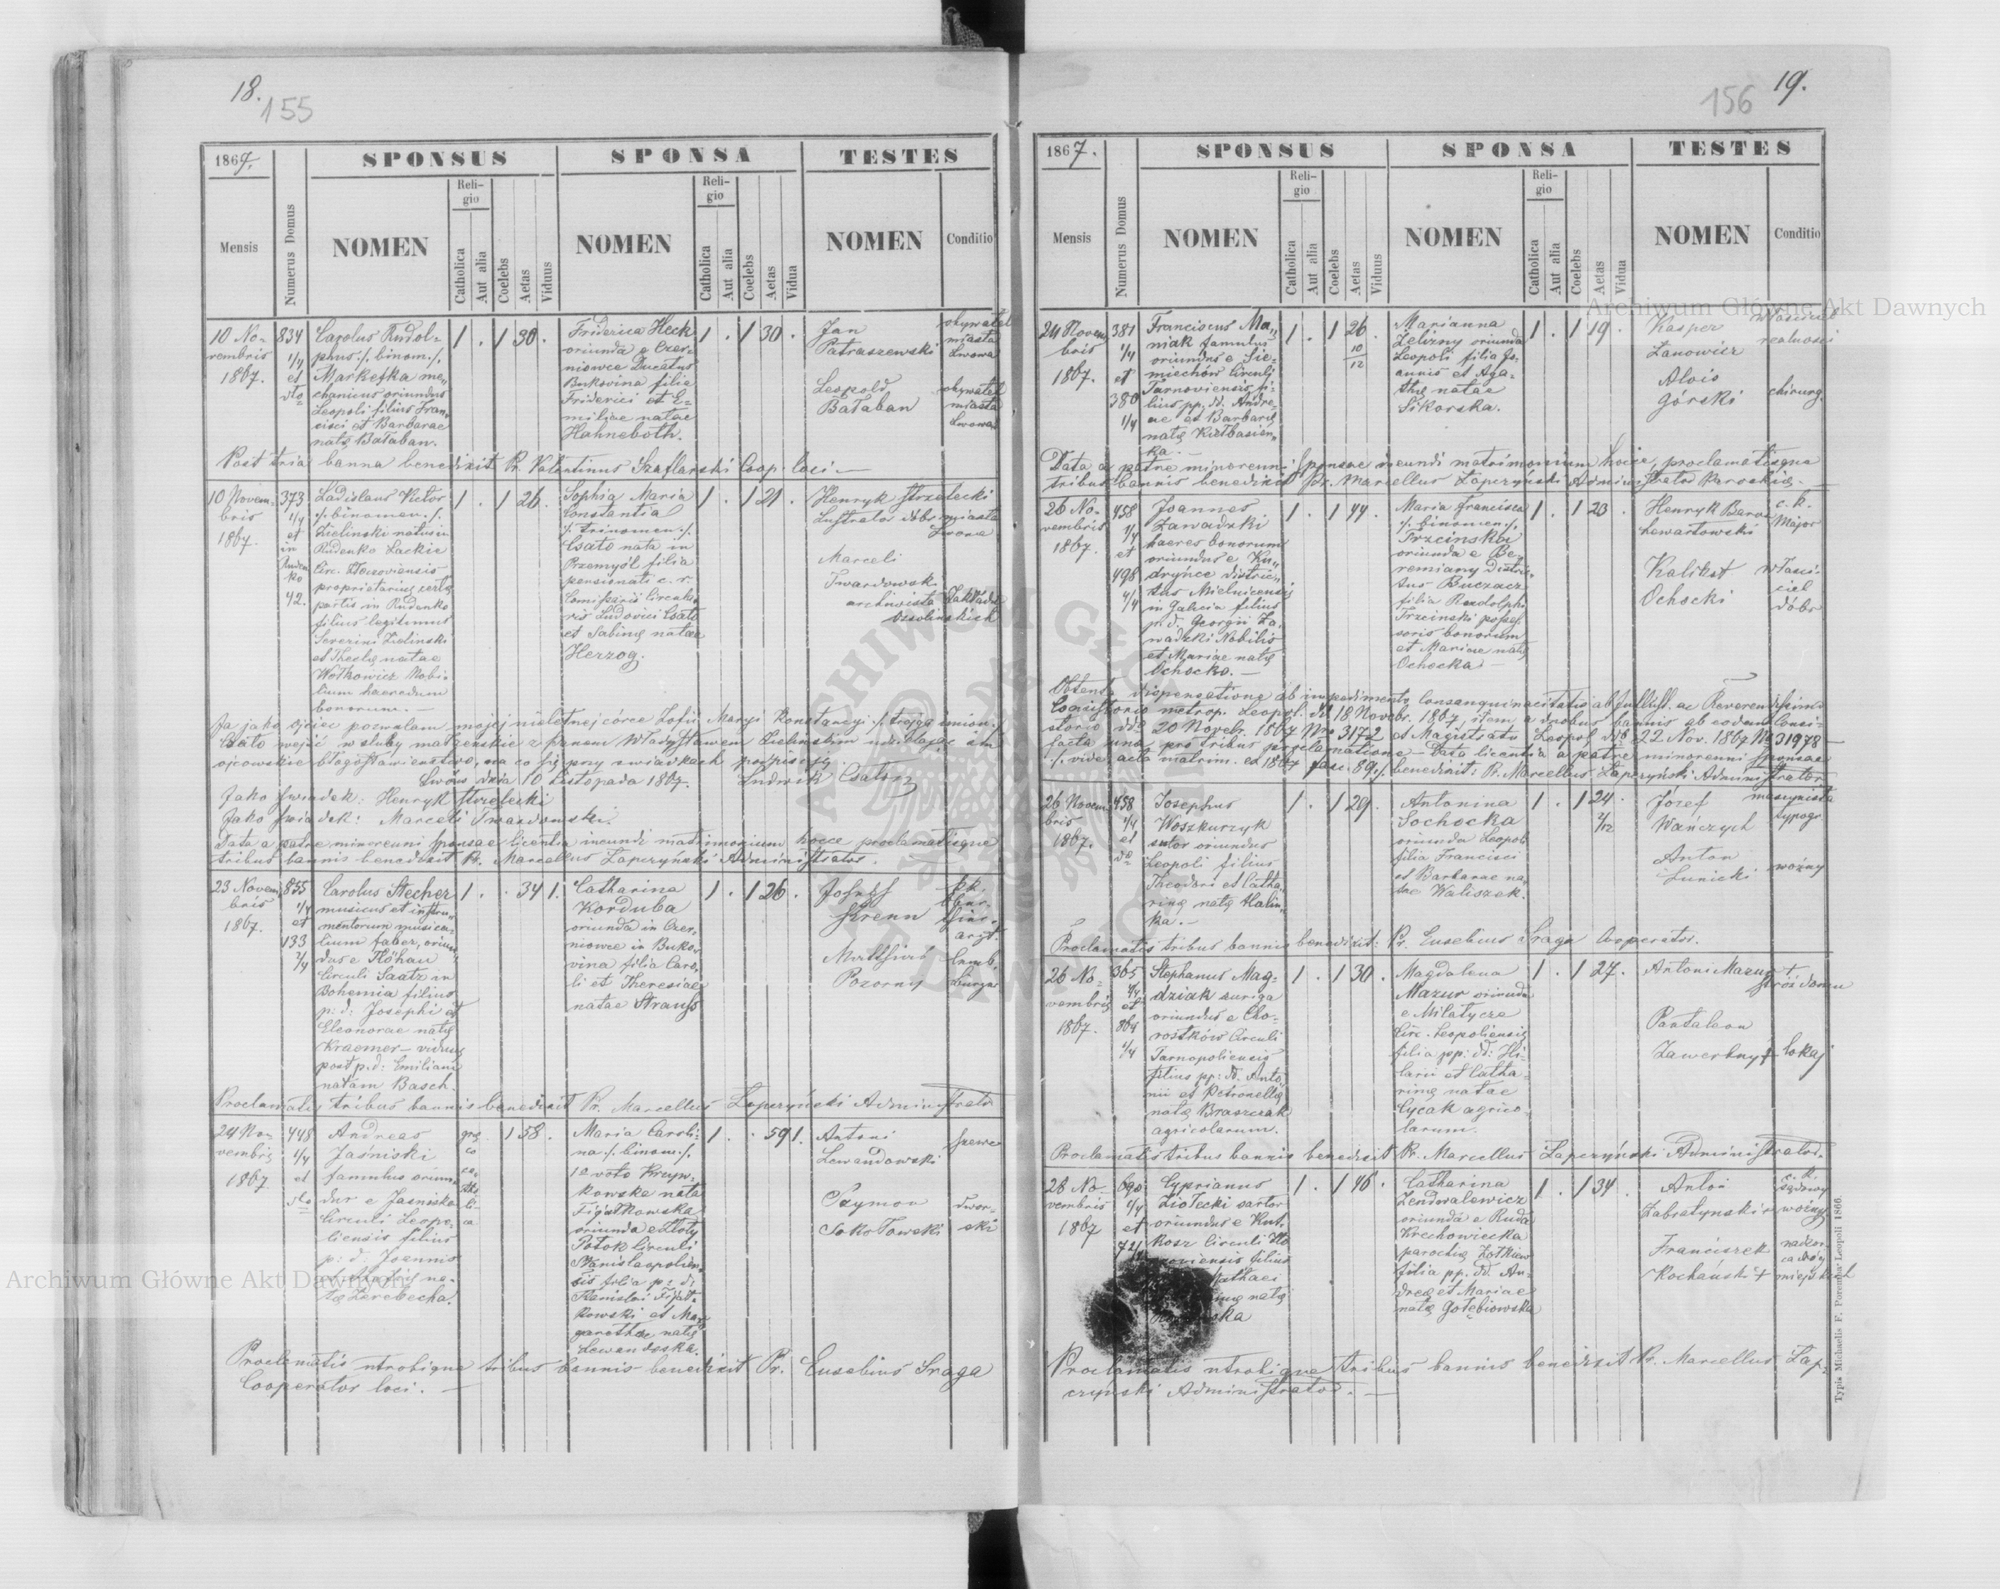 18.
155
1867.
SPONSUS
SPONSA
TESTES
Mensis
Numerus Domus
NOMEN
Religio
Catholica
Aut alia
Coelebs
Aetas
Viduus
NOMEN
Religio
Catholica
Aut alia
Coelebs
Aetas
Vidua
NOMEN
Conditio
10 No-
vembris
1867.
834
1/4
et
dto
Carolus Rudol-
phus ./. binom. ./.
Markefka me-
chanicus oriundus
Leopoli filius Fran-
cisci et Barbarae
natę Bałaban.
1 . 1 30 .
Friderica Heck
oriunda e Czer-
niowce Ducatus
Bukovina filia
Friderici et E-
miliae natae
Hahneboth.
1 . 1 30 .
Jan
Patraszewski
obywatel
miasta
Lwowa
Leopold
Bałaban
obywatel
miasta
Lwowa
Post tria banna benedixit Pr. Valentinus Szaflarski Coop. loci —
10 Novem-
bris
1867.
373
1/4
et
in
Ruden-
ko
42.
Ladislaus Victor
./. binomen. ./.
Zieliński natus in
Rudenko Lackie
Circ. Złoczoviensis
proprietarius certę
partis in Rudenko
filius legitimus
Severini Zieliński
et Theclę natae
Wołkowicz Nobi-
lium haeredum
bonorum. —
1 . 1 26 .
Sophia Maria
Constantia
./. trinomen. ./.
Csato nata in
Przemyśl filia
pensionati c. r.
Comissarii Circula-
ris Ludovici Csato
et Sabinę natae
Herzog.
1 . 1 21 .
Henryk Strzelecki
Lustrator dóbr miasta
Lwowa
Marceli
Twardowski
archiwista Zakładu
Ossolińskich
Ja jako ojciec pozwalam mojéj nieletniej córce Zofii Maryi Konstancyi ./. trojga imion ./.
Csato wejść w śluby małżeńskie z panem Władysławem Zielińskim udzielając im
ojcowskie błogosławieństwo, na co się przy świadkach podpisuję
Lwów dnia 10 Listopada 1867. Ludwik Csato
Jako świadek: Henryk Strzelecki
Jako świadek: Marceli Twardowski.
Data a patre minorenni sponsae licentia ineundi matrimonium hocce proclamatisque
tribus bannis benedixit Pr. Marcellus Łapczyński Administrator.
23 Novem-
bris
1867.
855
1/4
et
133
2/4
Carolus Stecher
musicus et instru-
mentorum musica-
lium faber, oriun-
dus e Flöhau
Circuli Saatz in
Bohemia filius
p: d: Josephi et
Eleonorae natę
Kraemer — viduus
post p.d: Emiliam
natam Basch.
1 . . 34 1.
Catharina
Korduba
oriunda in Czer-
niowce in Buko-
vina filia Caro-
li et Theresiae
natae Strauss
1 . 1 26 .
Josef
Krenn
Matthius
Pozorny
Proclamatis tribus bannis benedixit Pr. Marcellus Łapczyński Administrator
24 No-
vembris
1867
448
1/4
et
dto
Andreas
Jaśniski
famulus oriun-
dus e Jaśniska
Circuli Leopo-
liensis filius
p: d. Joannis
natę Zerebecha.
1 58 .
Maria Caroli-
na ./. binom. ./.
1o voto Krup-
kowska nata
Fijałkowska
oriunda e Złoty
Potok Circuli
Stanislaopolien-
sis filia p: d:
Stanislai Fijał-
kowski et Mar-
garethae natę
Lewandoska.
1 . . 59 1.
Antoni
Lewandowski
szewc
Szymon
Sokołowski
dwor-
ski
Proclamatis utrobique tribus bannis benedixit Pr. Eusebius Sraga
Cooperator loci. —
156
19.
1867.
SPONSUS
SPONSA
TESTES
Mensis
Numerus Domus
NOMEN
Religio
Catholica
Aut alia
Coelebs
Aetas
Viduus
NOMEN
Religio
Catholica
Aut alia
Coelebs
Aetas
Vidua
NOMEN
Conditio
24 Novem-
bris
1867.
381
1/4
et
380
1/4
Franciscus Ma-
niak famulus
oriundus e Sie-
miechów Circuli
Tarnoviensis fi-
lius pp: dd. Andre-
ae et Barbarę
natę Kiełbasien-
ka. —
1 . 1 26 .
10
12
Marianna
Zelizny oriunda
Leopoli filia Jo-
annis et Aga-
thę natae
Sikorska.
1 . 1 19 .
Kasper
Łanowicz
właściciel
realności
Alois
Górski
chirurg.
Data a patre minorenni sponsae ineundi matrimonium hocce, proclamatisque
tribus bannis benedixit Pr. Marcellus Łapczyński Administrator Parochię. —
26 No-
vembris
1867.
458
1/4
et
498
4/4
Joannes
Zawadzki
haeres bonorum
oriundus e Ku-
dryńce distric-
tus Mielnicensis
in Galicia filius
p. d. Georgii Za-
wadzki Nobilis
et Mariae natę
Ochocka. —
1 . 1 44 .
Maria Francisca
./. binomen ./.
Trzcinska
oriunda e Be-
remiany Distric-
tus Buczacz
filia Rudolphi
Trzcinski posses-
soris bonorum
et Mariae natę
Ochocka —
1 . 1 23 .
Henryk Baron
Lewartowski
c. k.
Major
Kalikst
Ochocki
właści-
ciel
dóbr
Obtenta dispensatione ab impedimento consanguinitatis ab Illust. ac Reverendissimo
Consistorio metrop. Leopol. dd 18 Novbr. 1867, item a duobus bannis ab eodem Consi-
storio ddo 20 Novbr. 1867 Nro 3172 et Magistratu Leopol ddo 22 Nov. 1867 No 31978 —
facta una pro tribus proclamatione — Data licentia a patre minorenni sponsae
./. vide acta matrim. ex 1867 fasc. 89 ./. benedixit: Pr. Marcellus Łapczyński Administrator
26 Novem-
bris
1867.
458
1/4
et
do
Josephus
Woszkurzyk
sutor oriundus
Leopoli filius
Theodori et Catha-
rinę natę Halin-
ka. —
1 . 1 29 .
Antonina
Sochocka
oriunda Leopoli
filia Francisci
et Barbarae na-
tae Waliszek.
1 . 1 24 .
2/12
Józef
Wańczych
maszynista
typogr.
Anton
Łunicki
woźny
Proclamatis tribus bannis benedixit: Pr. Eusebius Sraga Cooperator.
26 No-
vembris
1867.
365
4/4
et
864
1/4
Stephanus Mag-
dziak auriga
oriundus e Cho-
rostków Circuli
Tarnopoliensis
filius pp: dd. Anto-
nii et Petronellę
natę Braszczak
agricolarum.
1 . 1 30 .
Magdalena
Mazur oriunda
e Milatycze
Circ. Leopoliensis
filia pp: dd: Hi-
larii et Catha-
rinę natae
Cycak agrico-
larum.
1 . 1 27 .
Antoni Mazur +
stróż domu
Pantaleon
Zawerbny + lokaj
Proclamatis tribus bannis benedixit Pr. Marcellus Łapczyński Administrator.
28 No-
vembris
1867
690
1/4
et
72
Cyprianus
Ziołecki sartor
oriundus e Kut-
kosz Circuli Zło-
czoviensis filius
Mathaei
natę
1 . 1 46 .
Catharina
Zendwalewicz
oriunda e Ruda
Krechowiecka
parochię Żołkiew
filia pp. dd. An-
dreę et Mariae
natę Gołębiowska
1 . 1 34 .
Antoi
Zabratynski
c. k.
sądowy
woźny
Franciszek
Kochański +
nadzor-
ca dróg
miejskich
Proclamatis utrobique tribus bannis benedixit Pr. Marcellus Łap-
czyński Administrator. —
Typis Michaelis F. Poremba. Leopoli 1866.
Archiwum Główne Akt Dawnych
Archiwum Główne Akt Dawnych
ARCHIWUM GŁÓWNE AKT DAWNYCH